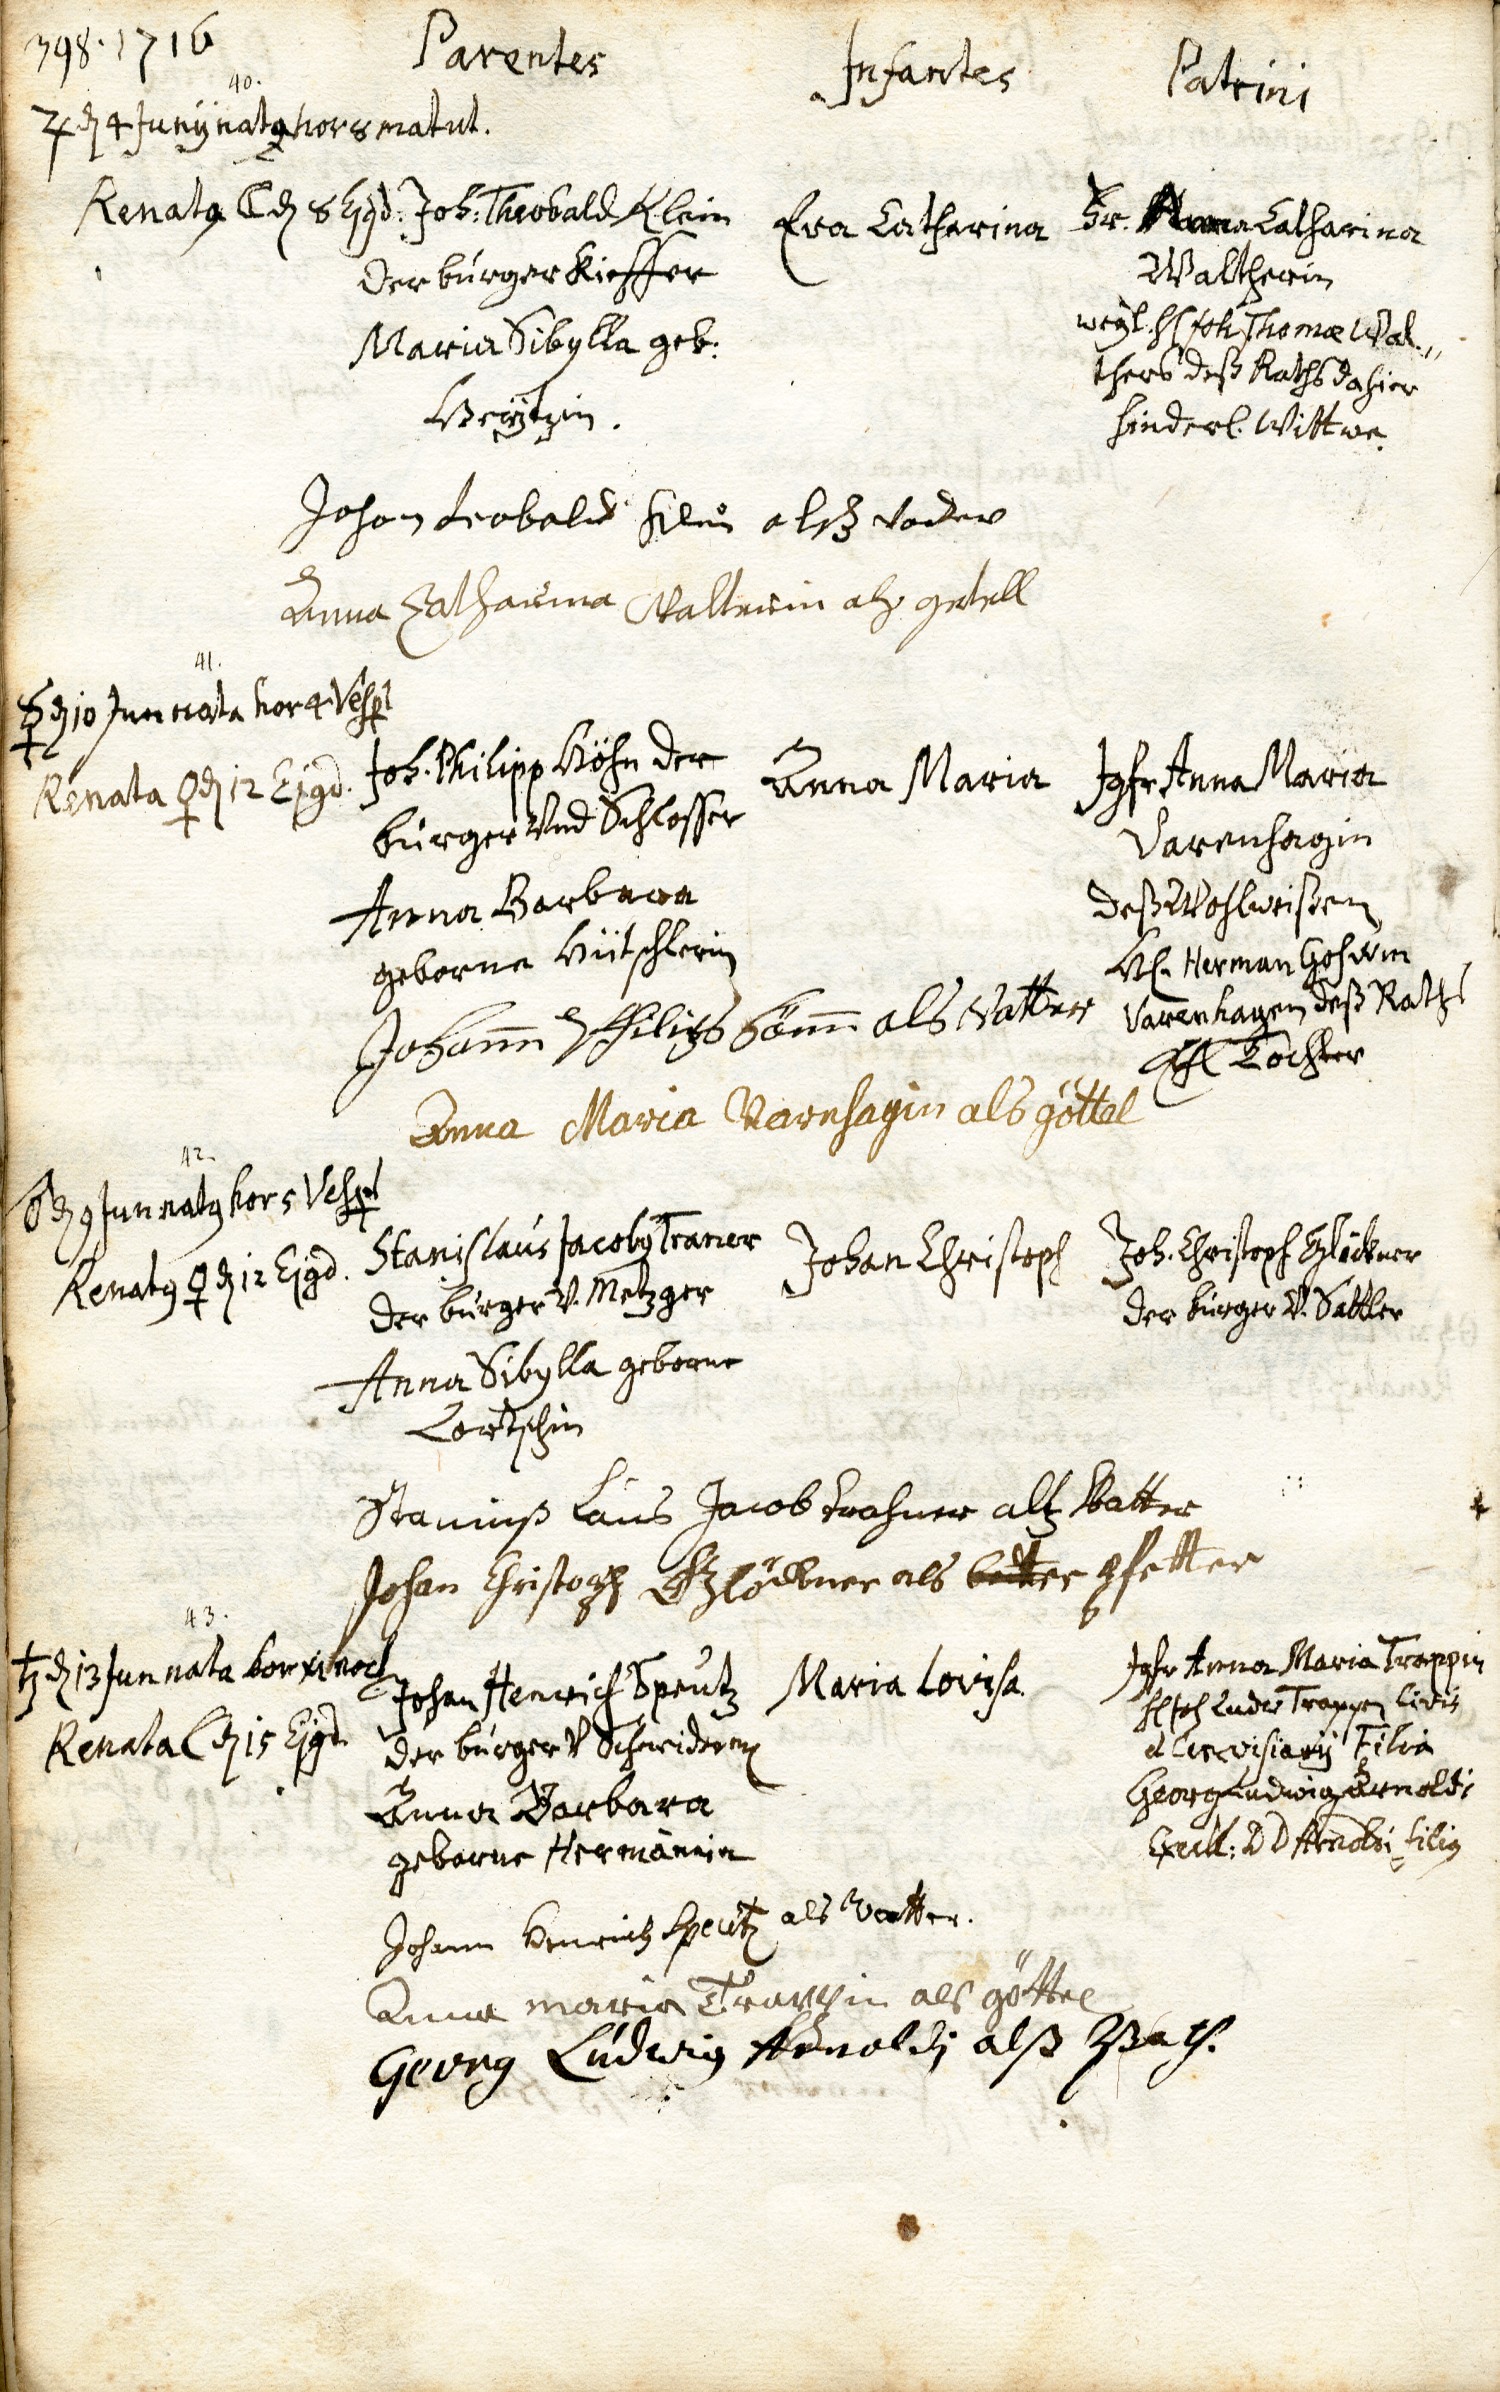 398. 1716
Parentes
Infantes
Patrini
40.
♃ d 4 Junÿ natq hor 8 matut.
Renatq ☾ d 8 Ejgd.
Joh: Theobald Klein
der bürger Kieffer
Maria Sibylla geb:
Eva Catharina
Fr. Anna Catharina
Waltherin
weÿl. H Joh Thomæ Wal„
thers deß Raths dahier
hinderl. Wittwe.
Johan Teobald Klein alß Vader
Anna Catharina Walterin alß getell
41.
☿ d 10 Jun nata hor 4 Vesp
Renata ♀ d 12 Ejgd.
Joh. Philipp Höhn der
bürger Vnd Schlosser
Anna Barbara
geborne Hütschlerin
Anna Maria
Jgfr Anna Maria
Varenhagin
deß Wohlweißen
H. Herman Goswin
Varenhagen deß Raths
Tochter
Johann Philips Hönn als Vatter
Anna Maria Varnhagin als göttel
42.
♂ d 9 Jun natq hor 5 Vesp
Renatq ♀ d 12 Ejgd.
Stanislaus Jacoby Traner
der bürger V. Metzger
Anna Sibylla geborne
Lortschin
Johan Christoph
Joh. Christoph Glöckner
der bürger V. Sattler
Stanniß Laus Jacob trahner alß Vatter
Johan Christoph Glöckner als better pfetter
43.
♄ d 13 Jun nata hor xi noct
Renata ☾ d 15 Ejgd
Johan Henrich Speutz
der bürger V Schneider
Anna Barbara
geborne Hermännin
Maria Lovisa.
Jgfr Anna Maria Trappin
H Joh Ludw Trappen Civis
et Cerevisiarÿ Filia
Georg Ludwig Arnoldi
Excell: D D Arnoldi filiq
Johann Henrich Speutz als Vatter.
Anna maria Trappin als göttel
Georg Ludwig Arnoldj alß Path.